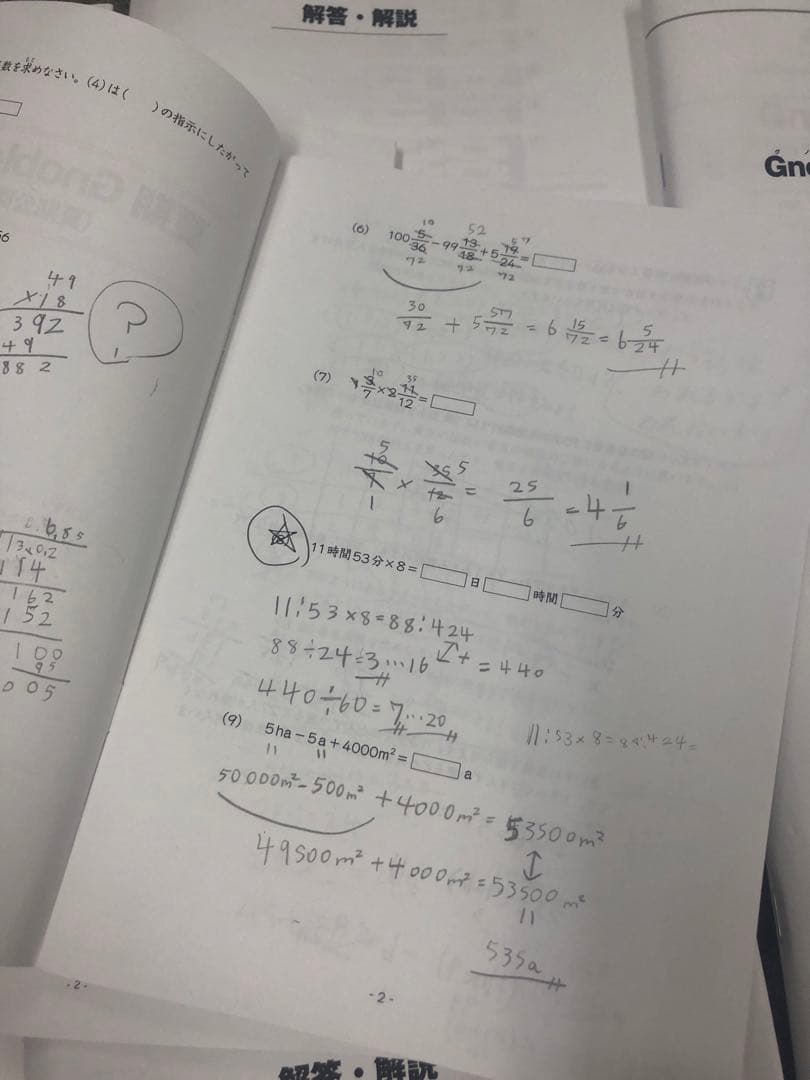 解答・解説
数を求めなさい。(4)は(　　)の指示にしたがって
56
49
×18
392
49
882
?
6.85
13.0.2
114
162
152
100
95
005
- 2 -
(6) 100 5/36 - 99 13/18 + 5 19/24 = □
10 52 57
72 72 72
30/72 + 5 57/72 = 6 15/72 = 6 5/24
(7) 1 3/7 × 2 11/12 = □
10 35
10/7 × 35/12 = 25/6 = 4 1/6
5 5
1 6
(8) 11時間53分×8=□日□時間□分
11:53×8=88:424
88÷24=3…16 = 440
440÷60=7…20
11:53×8=88:424=
(9) 5ha-5a+4000m²=□a
50000m²-500m²+4000m²=53500m²
49500m²+4000m²=53500m²
535a
- 2 -
解答・解説